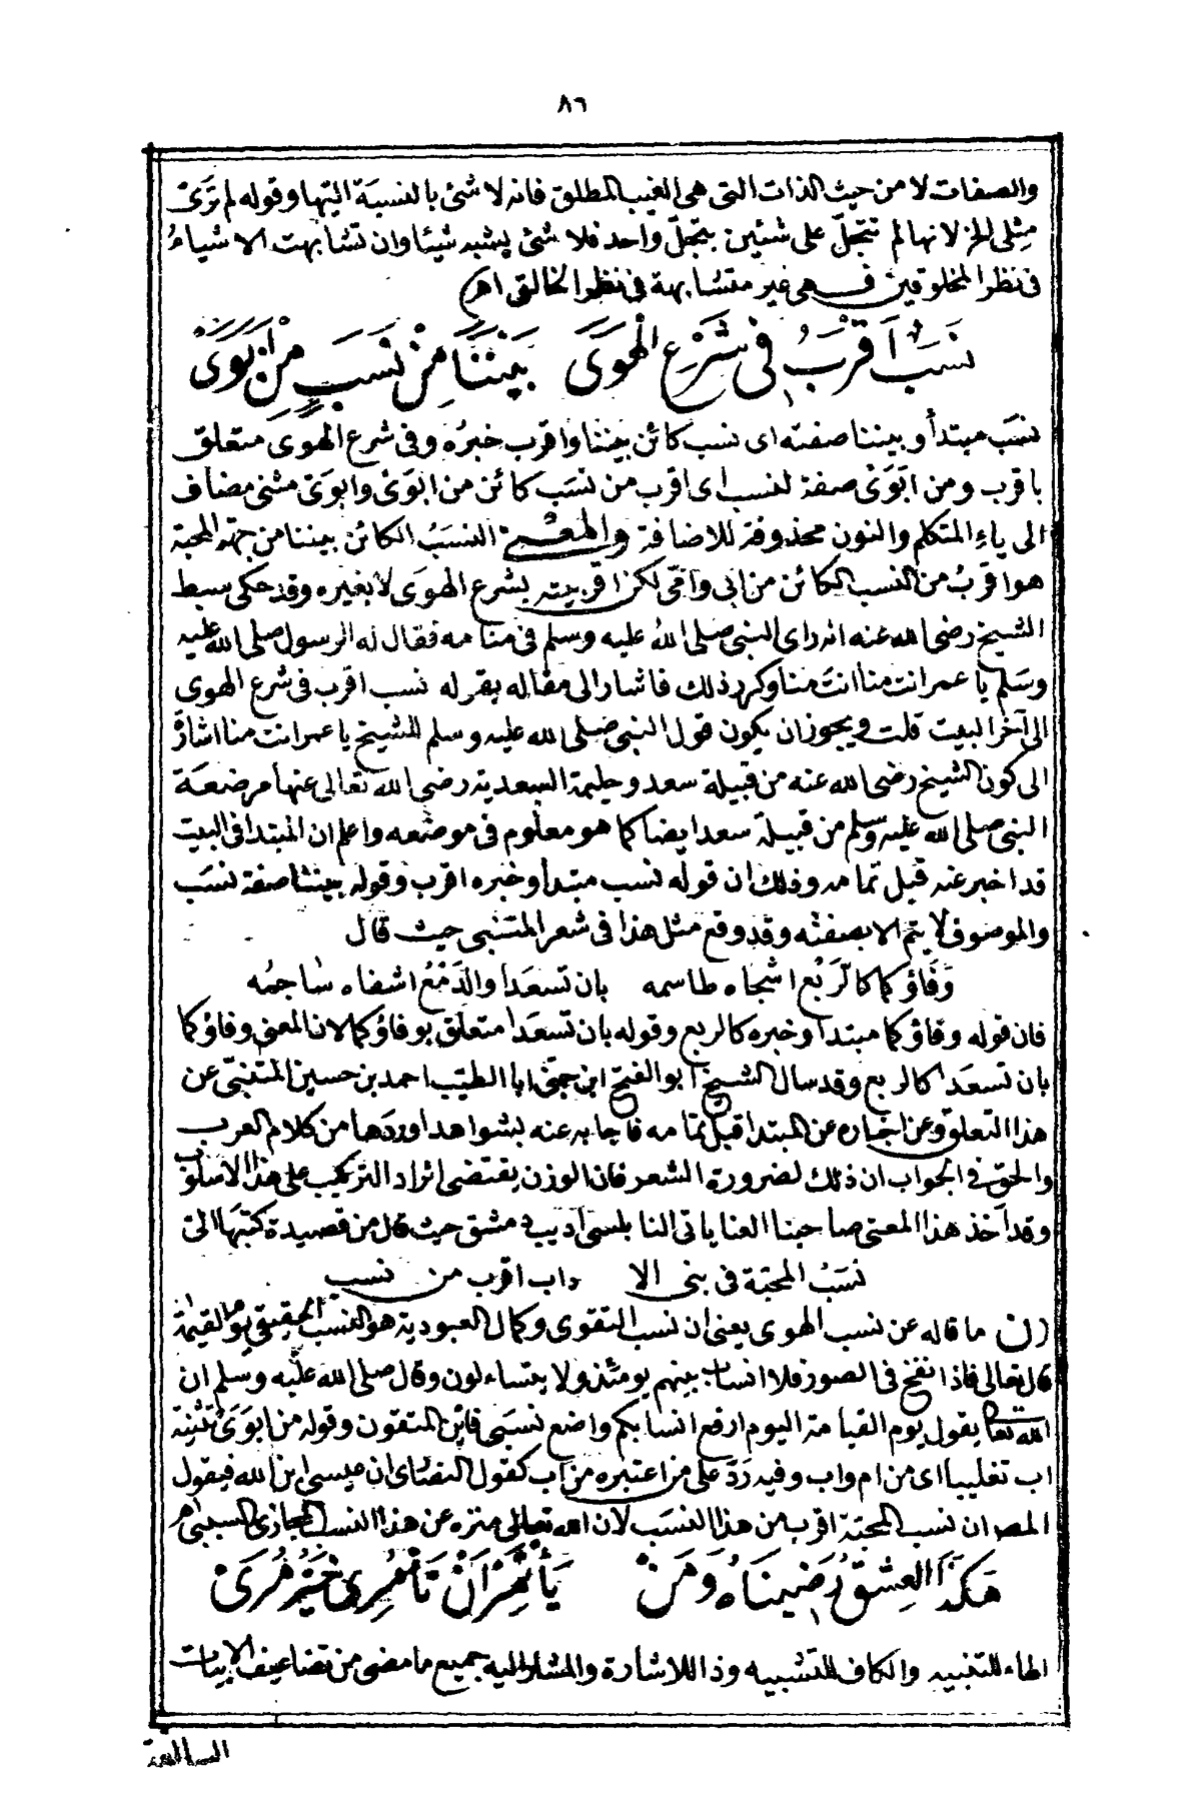 ٨٦
والصفات لا من حيث الذات التى هى الغيب المطلق فانه لا شئ بالنسبة اليها وقوله لم ترى
مثلى الخ لانها لم تتجل على شيئين بتجل واحد فلا شئ يشبه شيئا وان تشابهت الاشياء
فى نظر المخلوقين فهى غير متشابهة فى نظر الخالق اهـ
نَسَبٌ اَقْرَبُ فى شَرْعِ الهَوَى بَيْنَنَا مِنْ نَسَبٍ مِنْ اَبَوَىْ
نسب مبتدأ وبيننا صفته اى نسب كائن بيننا واقرب خبره وفى شرع الهوى متعلق
باقرب ومن ابوىْ صفة لنسب اى اقرب من نسب كائن من ابوىْ وابوىْ مثنى مضاف
الى ياء المتكلم والنون محذوفة للاضافة والمعنى النسب الكائن بيننا من جهة المحبة
هو اقرب من النسب الكائن من ابى وامى لكن اقربيته بشرع الهوى لا بغيره وقد حكى سبط
الشيخ رضى الله عنه انه راى النبى صلى الله عليه وسلم فى منامه فقال له الرسول صلى الله عليه
وسلم يا عمر انت منا انت منا وكرر ذلك فاشار الى مقاله بقوله نسب اقرب فى شرع الهوى
الى آخر البيت قلت ويجوز ان يكون قول النبى صلى الله عليه وسلم للشيخ يا عمر انت منا اشارة
الى كون الشيخ رضى الله عنه من قبيلة سعد وحليمة السعدية رضى الله تعالى عنها مرضعة
النبى صلى الله عليه وسلم من قبيلة سعد ايضا كما هو معلوم فى موضعه واعلم ان المبتدا فى البيت
قد اخبر عنه قبل تمامه وذلك ان قوله نسب مبتدأ وخبره اقرب وقوله بيننا صفة نسب
والموصوف لا يتم الا بصفته وقد وقع مثل هذا فى شعر المتنبى حيث قال
وَفَاؤكما كالرَّبْع اشجاه طاسمه بان تسعَدا والدَّمْعُ اشفاه ساجمُه
فان قوله وفاؤكما مبتدا وخبره كالربع وقوله بان تسعدا متعلق بوفاؤكما لان المعنى وفاؤكما
بان تسعدا كالربع وقد سال الشيخ ابو الفتح ابن جنى ابا الطيب احمد بن حسين المتنبّى عن
هذا التعلق وعن اخباره عن المبتدا قبل تمامه فاجابه عنه بشواهد اوردها من كلام العرب
والحق فى الجواب ان ذلك لضرورة الشعر فان الوزن يقتضى ايراد التركيب على هذا الاسلوب
وقد اخذ هذا المعنى صاحبنا العناياتى النابلسى اديب دمشق حيث قال من قصيدة كتبها الىّ
نَسَبُ المحبة فى بنى الا داب اقرب من نسب
(ن) ما قاله عن نسب الهوى يعنى ان نسب التقوى وكمال العبودية هو النسب الحقيقى يوم القيمة
قال تعالى فاذا نفخ فى الصور فلا انساب بينهم يومئذ ولا يتساءلون وقال صلى الله عليه وسلم ان
الله تعالى يقول يوم القيامة اليوم ارفع انسابكم واضع نسبى فاين المتقون وقوله من ابوىْ تثنية
اب تغليبا اى من ام واب وفيه ردّ على من اعتبره من اب كقول النصارى ان عيسى ابن الله فيقول
المصر ان نسب المحبة اقرب من هذا النسب لان الله تعالى منزه عن هذا النسب المجازى السببى اهـ
هَكَذَا العِشْقُ رَضِينَاهُ وَمَنْ يَأْتَمِرْ اَنْ تَأْمُرِى خَيْرُ مُرَىْ
الهاء للتنبيه والكاف للتشبيه وذا للاشارة والمشار اليه جميع ما مضى من تضاعيف الابيات
السالفة